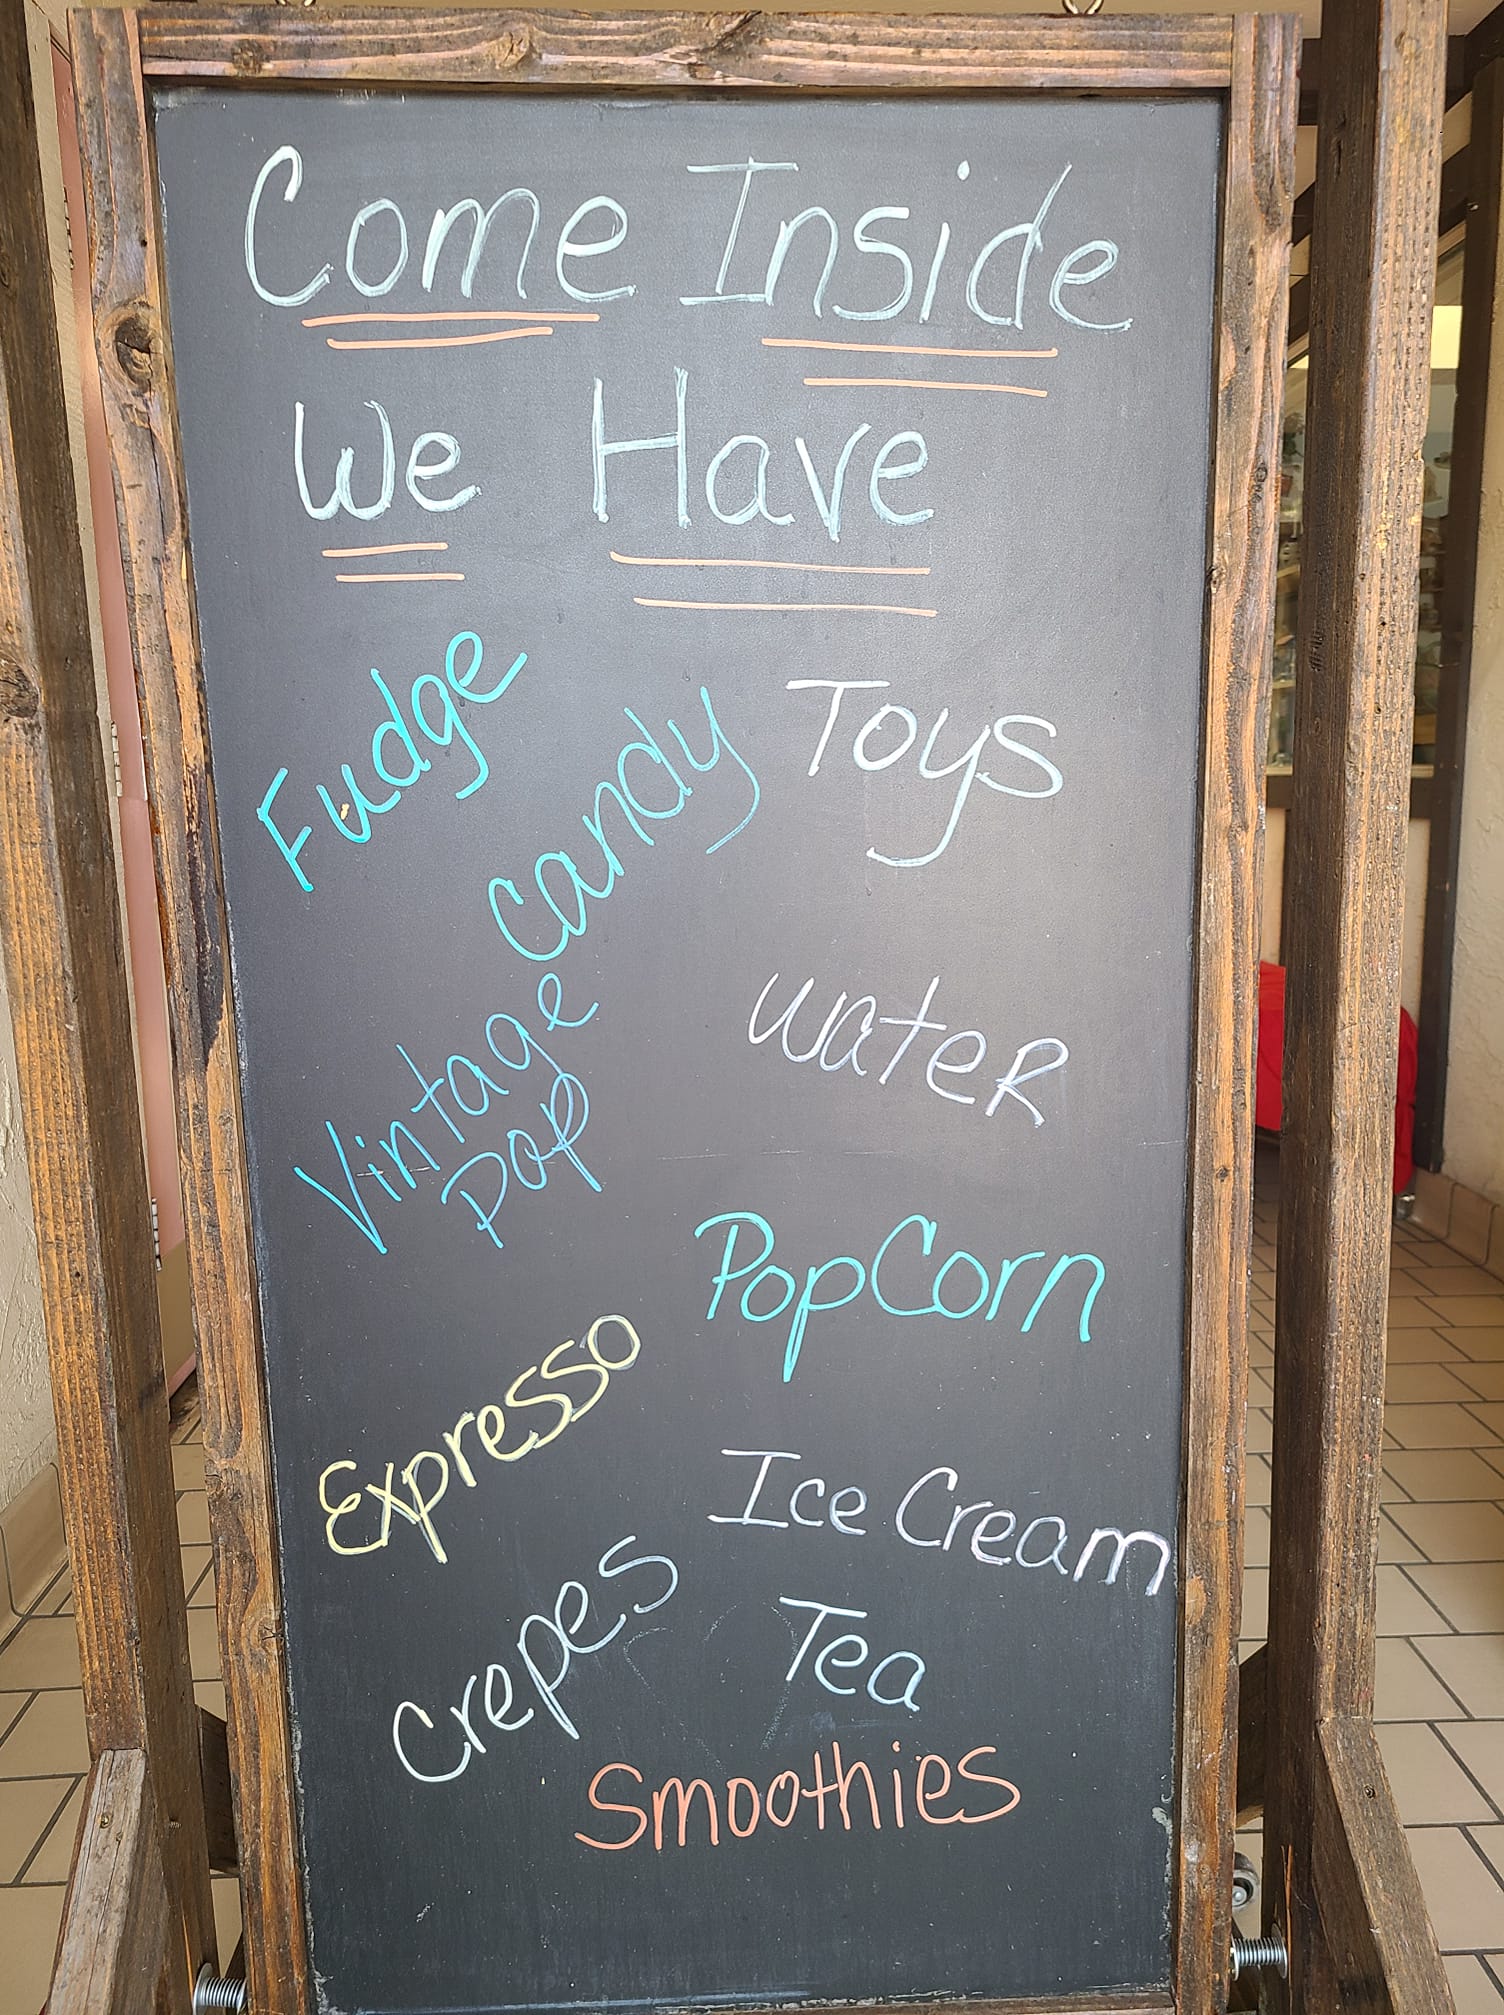 Come Inside
We Have
Fudge
Candy
Toys
Vintage
Pop
water
PopCorn
Expresso
Ice Cream
Crepes
Tea
Smoothies